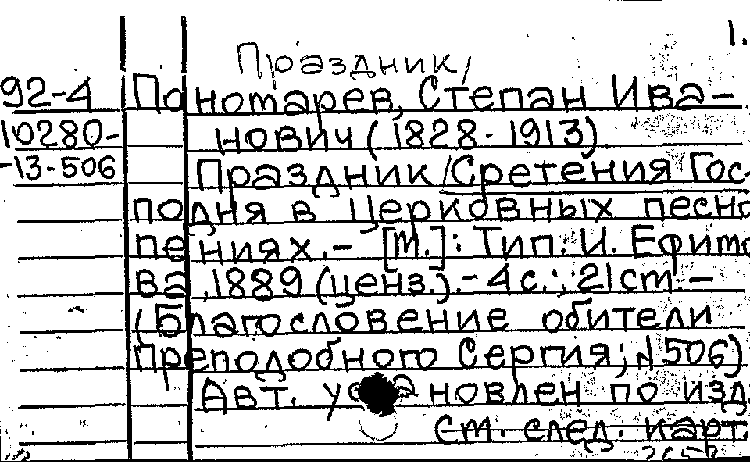 1.
Праздник/
92-4 Пономарев, Степан Ива-
10280- нович (1828-1913).
-13-506 Праздник/Сретения Гос-
подня в церковных песно
пениях.- [М.]: Тип. И. Ефимо
ва, 1889 (ценз.).- 4 с.; 21 см.-
(Благословение обители
преподобного Сергия; №506)
Авт. установлен по изд.
см. след. карт.